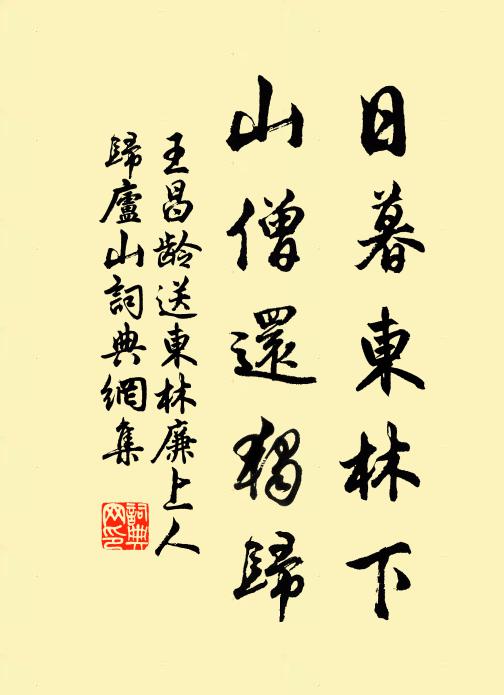 日暮東林下
山僧還獨歸
王昌龄送東林廉上人
歸廬山詞典網集
詞典
网印